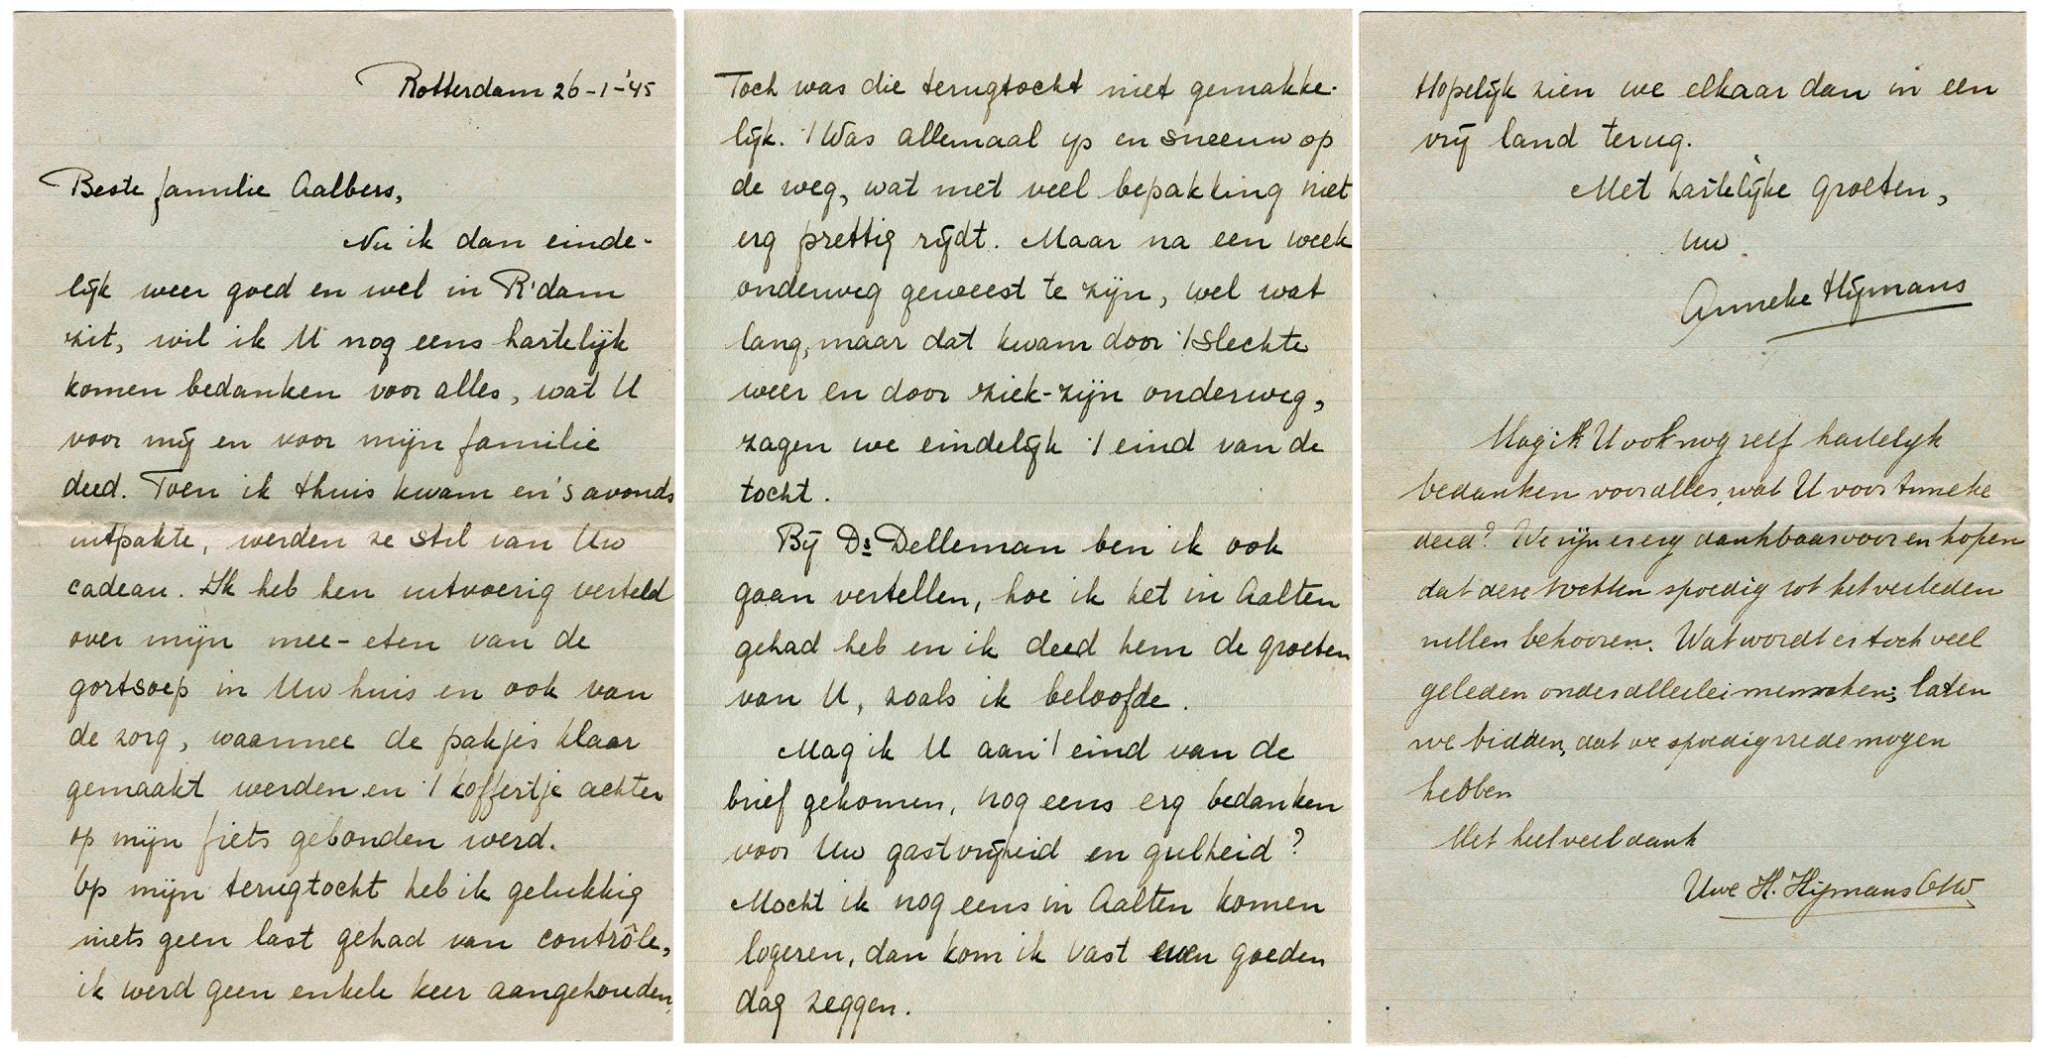 Rotterdam 26-1-'45
Beste familie Aalbers,
Nu ik dan einde-
lijk weer goed en wel in R'dam
zit, wil ik U nog eens hartelijk
komen bedanken voor alles, wat U
voor mij en voor mijn familie
deed. Toen ik thuis kwam en 's avonds
uitpakte, werden ze stil van Uw
cadeau. Ik heb hen uitvoerig verteld
over mijn mee-eten van de
gortsoep in Uw huis en ook van
de zorg, waarmee de pakjes klaar
gemaakt werden en 't koffertje achter
op mijn fiets gebonden werd.
Op mijn terugtocht heb ik gelukkig
niets geen last gehad van contrôle,
ik werd geen enkele keer aangehouden.
Toch was die terugtocht niet gemakke-
lijk. 't Was allemaal ijs en sneeuw op
de weg, wat met veel bepakking niet
erg prettig rijdt. Maar na een week
onderweg geweest te zijn, wel wat
lang, maar dat kwam door 't slechte
weer en door ziek-zijn onderweg,
zagen we eindelijk 't eind van de
tocht.
Bij Ds Delleman ben ik ook
gaan vertellen, hoe ik het in Aalten
gehad heb en ik deed hem de groeten
van U, zoals ik beloofde.
Mag ik U aan 't eind van de
brief gekomen, nog eens erg bedanken
voor Uw gastvrijheid en gulheid?
Mocht ik nog eens in Aalten komen
logeren, dan kom ik vast even goeden
dag zeggen.
Hopelijk zien we elkaar dan in een
vrij land terug.
Met hartelijke groeten,
Uw
Anneke Hijmans
Mag ik U ook nog zelf hartelijk
bedanken voor alles, wat U voor Anneke
deed? We zijn er erg dankbaar voor en hopen
dat deze tochten spoedig tot het verleden
zullen behooren. Wat wordt er toch veel
geleden onder allerlei menschen; laten
we bidden, dat we spoedig vrede mogen
hebben
Met heel veel dank
Uwe H. Hijmans